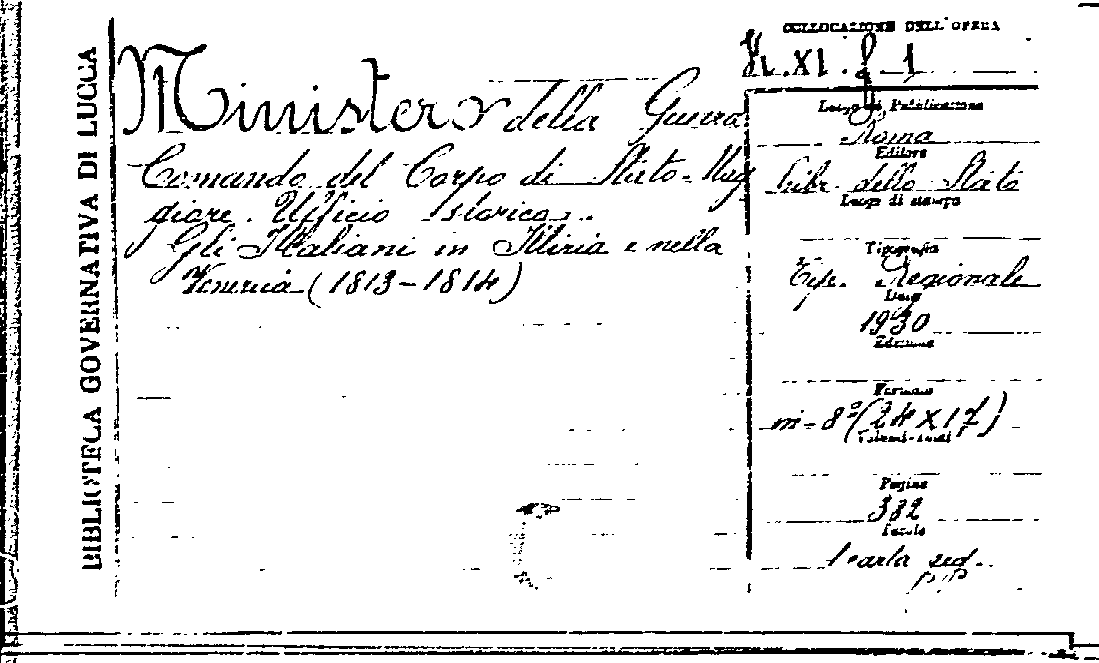 BIBLIOTECA GOVERNATIVA DI LUCCA
Ministero della Guerra
Comando del Corpo di Stato-Mag
giore. Ufficio Storico.
Gli Italiani in Illiria e nella
Venezia (1813-1814)
COLLOCAZIONE DELL'OPERA
XI. 1
Luogo di Pubblicazione
Roma
Editore
Libr. dello Stato
Luogo di stampa
Tipografia
Tip. Regionale
Data
1930
Edizione
Formato
in-8º (24X17)
Volumi-tomi
Pagine
382
Tavole
1 carta